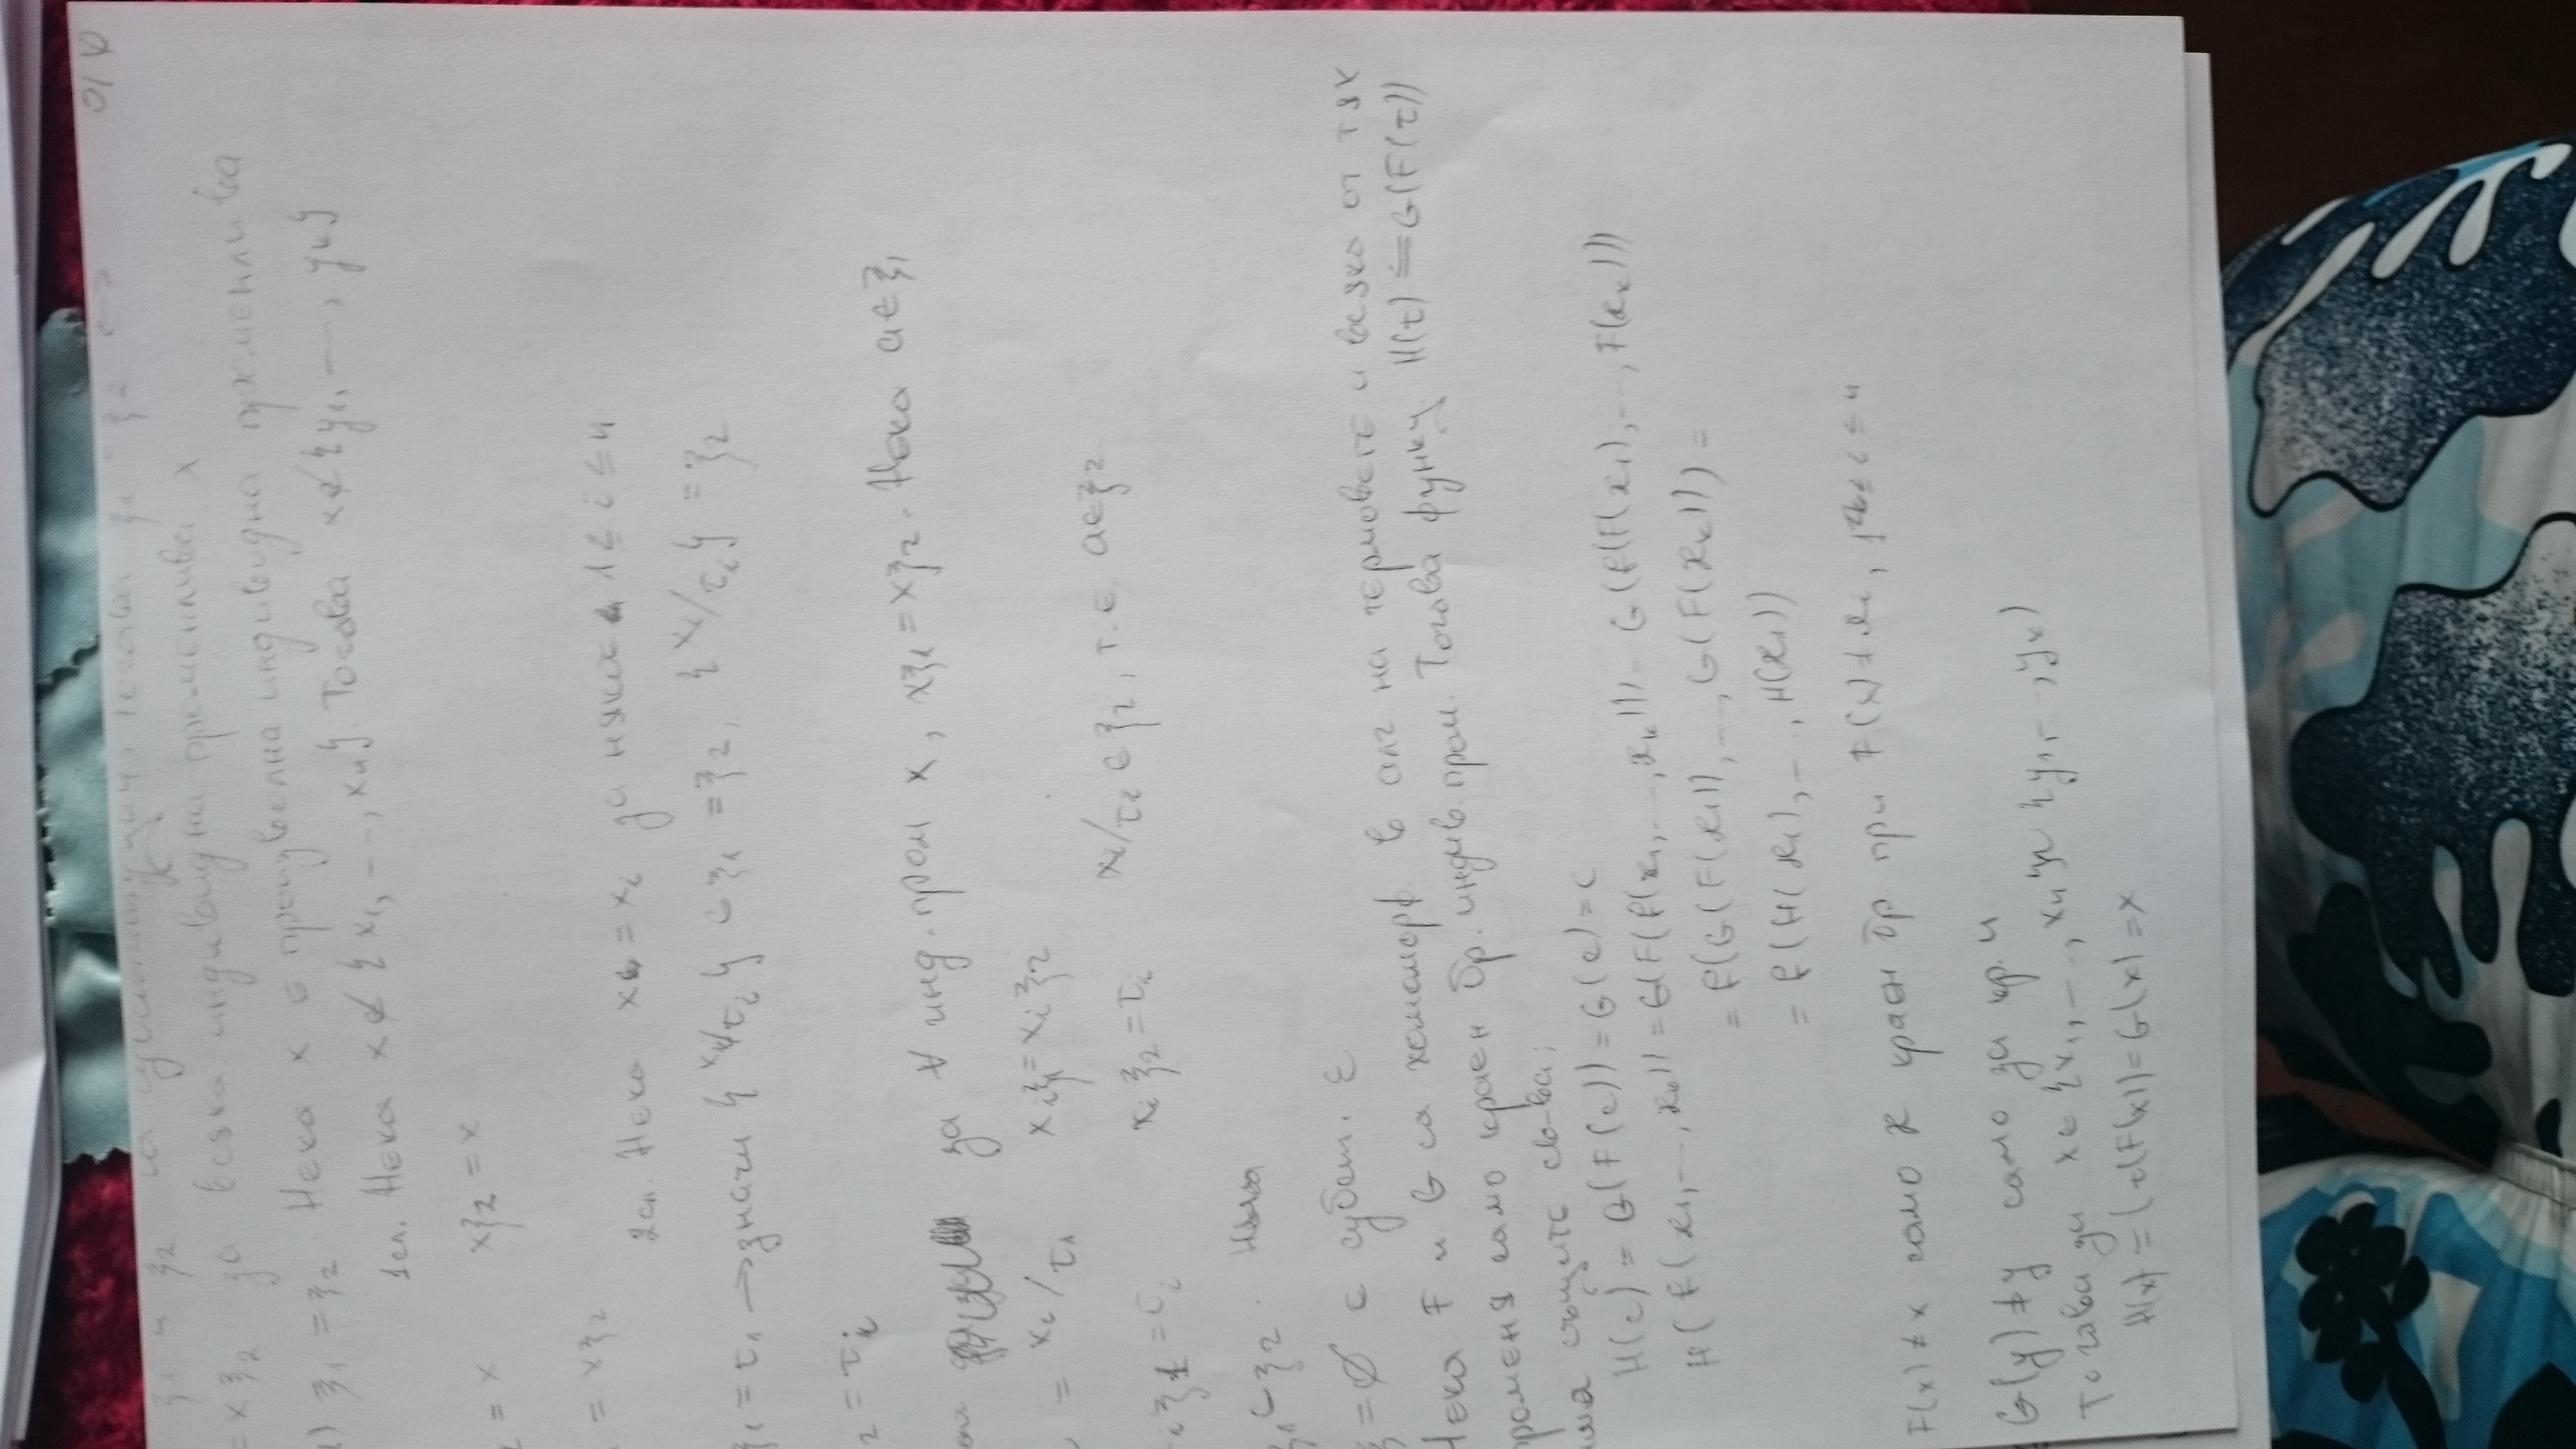 ξ1 и ξ2 са субституции, тогава ξ1 = ξ2 ⟷
= xξ2 за всяка индивидна променлива x
ξ1 = ξ2. Нека x е произволна индивидна променлива
1сл. Нека x ∉ {x1, ..., xn}. Тогава x ∉ {y1, ..., yk}
= x xξ2 = x
= xξ2
2сл. Нека x = xi за някое 1 ≤ i ≤ n
ξ1 = τ1 → значи {xi/τi} ⊂ ξ1 = ξ2, {xi/τi} = ξ2
2 = τi
за ∀ инд. пром x, xξ1 = xξ2. Нека a ∈ ξ1
= xi/τi xiξ1 = xiξ2
iξ1 = τi xiξ2 = τi xi/τi ∈ ξ2, т.е. a ∈ ξ2
ξ1 ⊂ ξ2.
ξ = ∅ с субст. ε
Нека F и G са хомоморф. в алг. на термовете и всяко от тях
променя само краен бр. индив. пром. Тогава функц. H(τ) ≒ G(F(τ))
има същите св-ва:
H(c) = G(F(c)) = G(c) = c
H(f(æ1, ..., æk)) = G(F(f(æ1, ..., æk))) = G(f(F(æ1), ..., F(æk)))
= f(G(F(æ1)), ..., G(F(æk))) =
= f(H(æ1), ..., H(æ1))
F(x) ≠ x само краен бр при F(x) ≠ æi, 1 ≤ i ≤ n
G(y) ≠ y само за кр. и
Тогава за x ∈ {x1, ..., xn {y1, ..., yk)
H(x) = G(F(x)) = G(x) = x